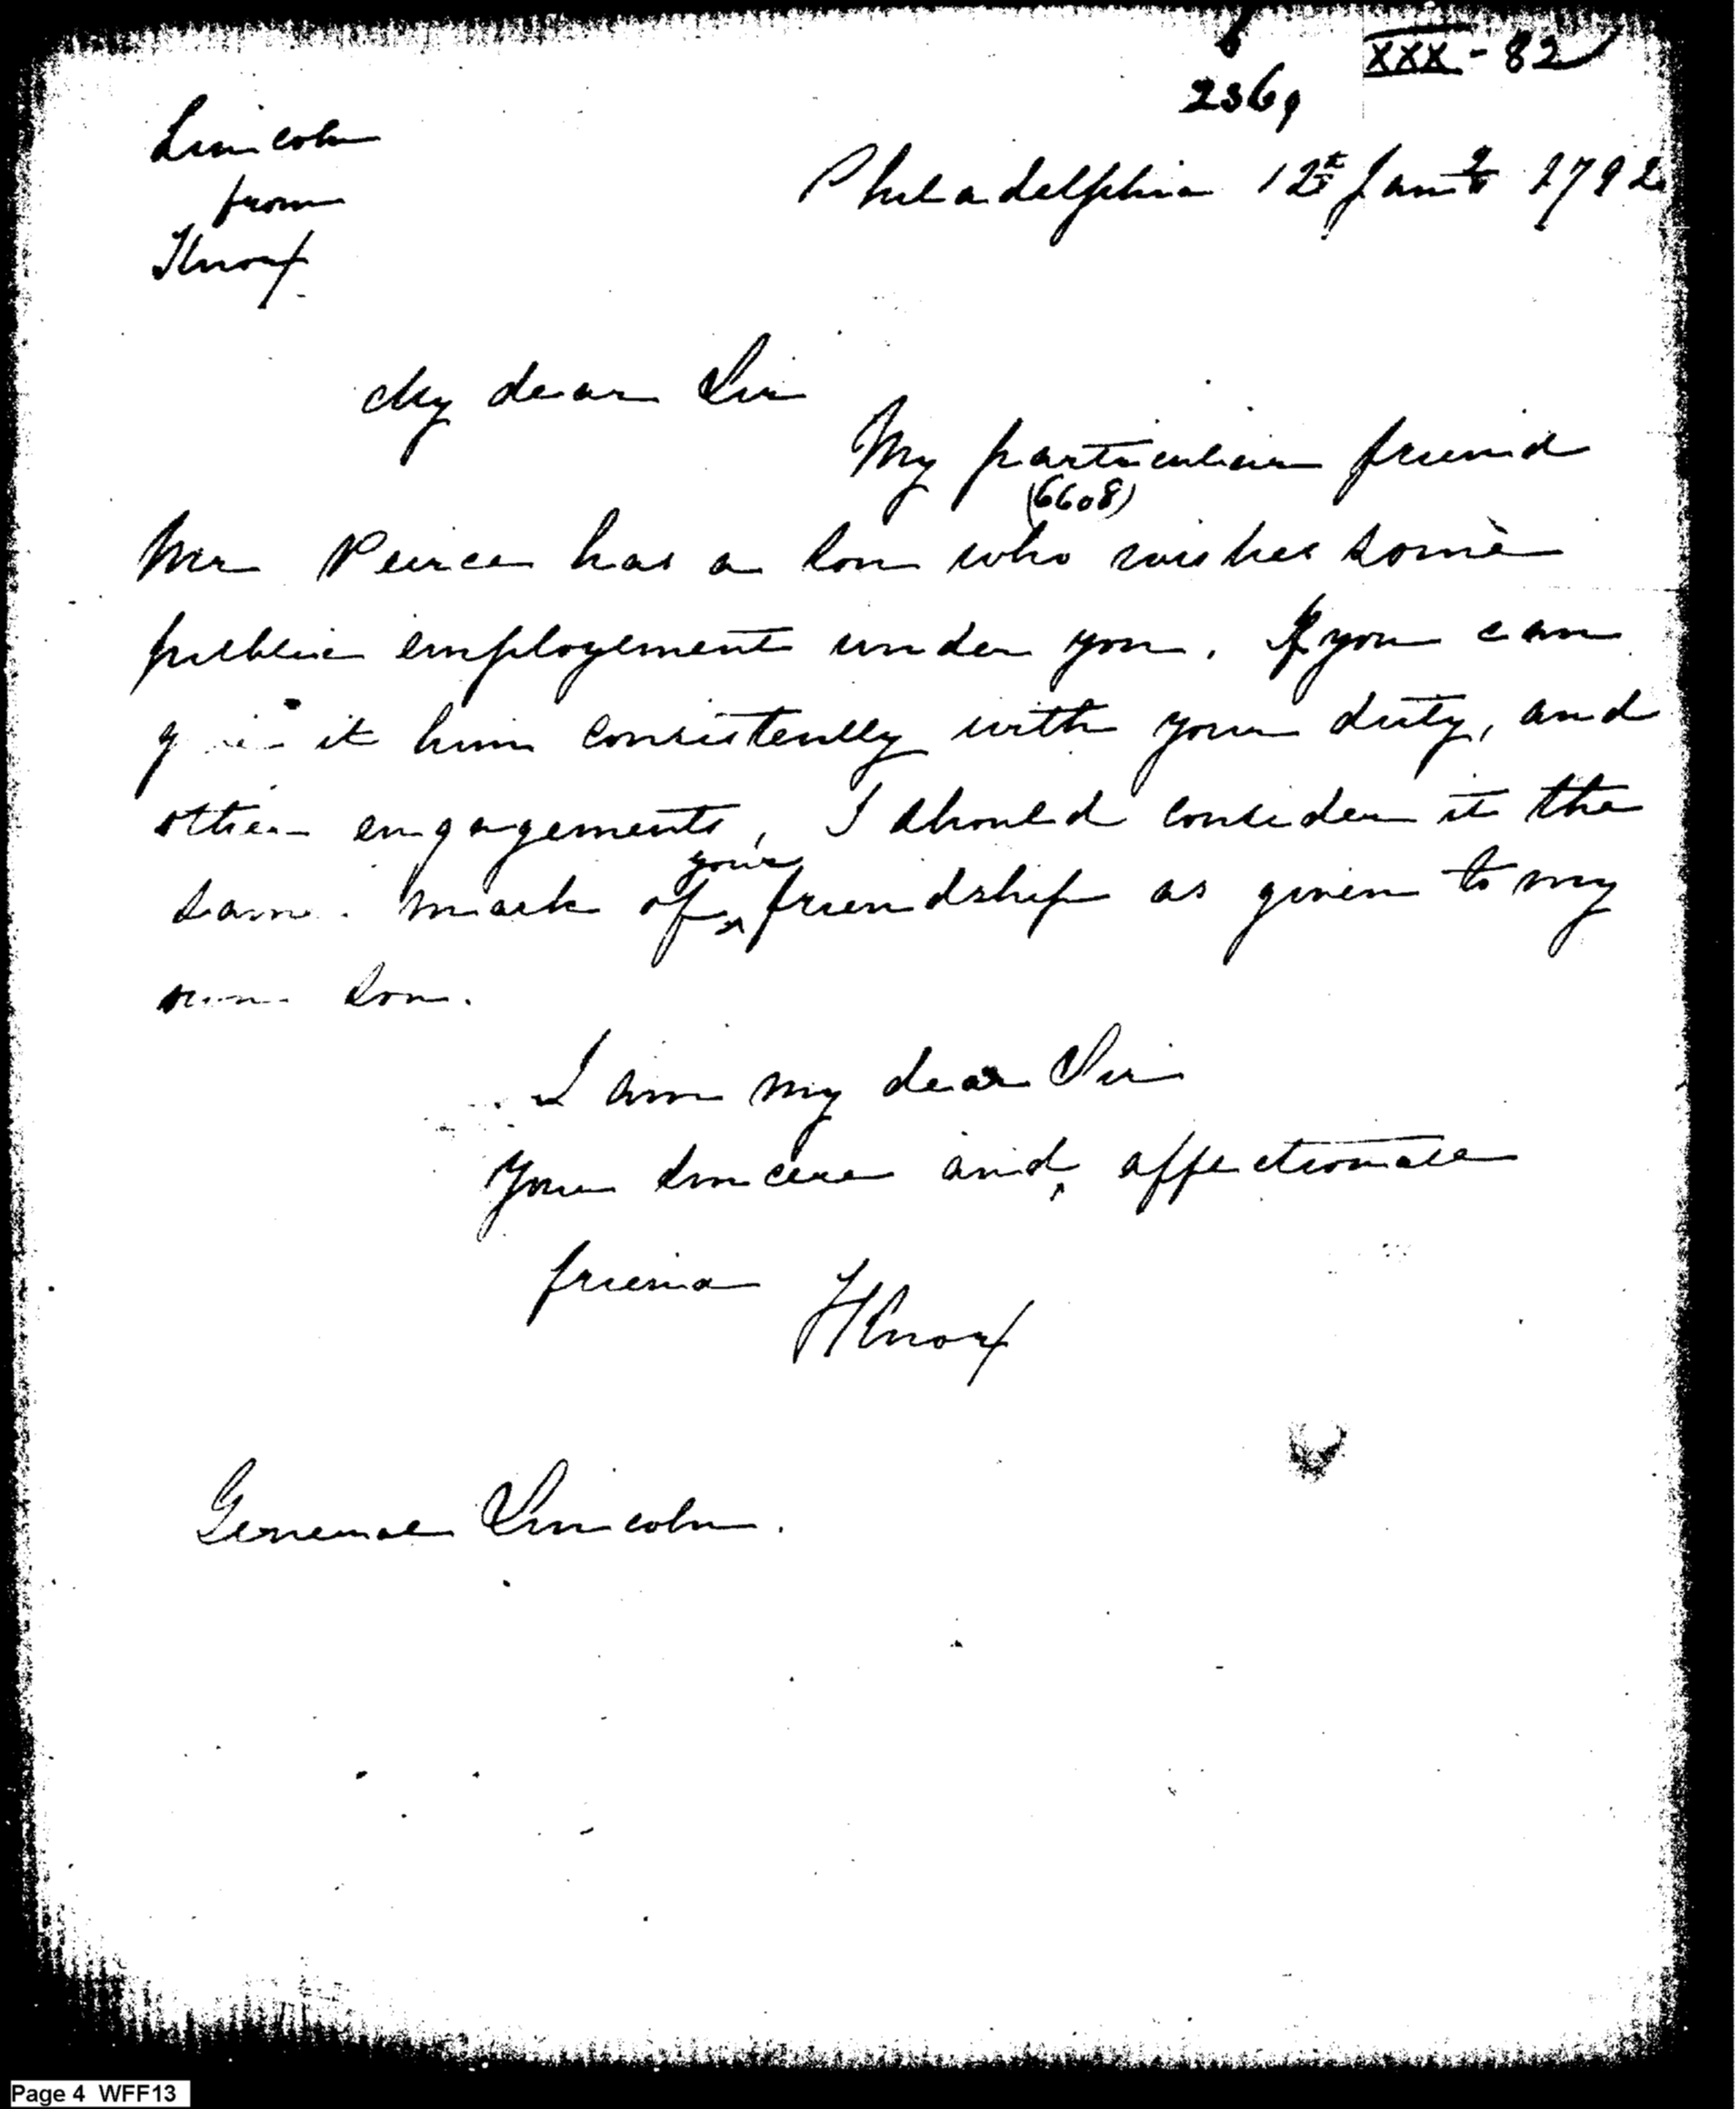 XXX - 82
236,
Lincoln
from
Knox
Philadelphia 12th Jany 1792
My dear Sir
My particular friend
(6608)
Mr Peirce has a son who wishes some
public employement under you. If you can
give it him consistently with your duty, and
other engagements, I should consider it the
same mark of your friendship as given to my
own son.
I am my dear Sir
Your sincere and affectionate
friend
HKnox
General Lincoln.
Page 4 WFF13